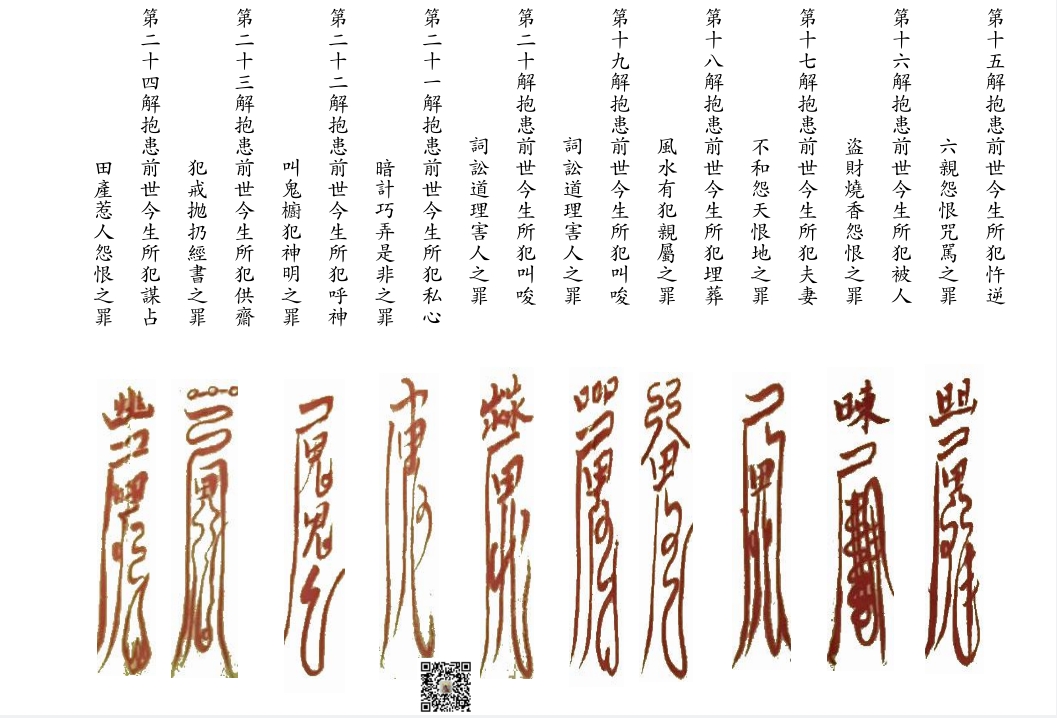 第十五解抱患前世今生所犯忤逆
六親怨恨咒罵之罪
第十六解抱患前世今生所犯被人
盜財燒香怨恨之罪
第十七解抱患前世今生所犯夫妻
不和怨天恨地之罪
第十八解抱患前世今生所犯埋葬
風水有犯親屬之罪
第十九解抱患前世今生所犯叫唆
詞訟道理害人之罪
第二十解抱患前世今生所犯叫唆
詞訟道理害人之罪
第二十一解抱患前世今生所犯私心
暗計巧弄是非之罪
第二十二解抱患前世今生所犯呼神
叫鬼櫥犯神明之罪
第二十三解抱患前世今生所犯供齋
犯戒拋扔經書之罪
第二十四解抱患前世今生所犯謀占
田產惹人怨恨之罪